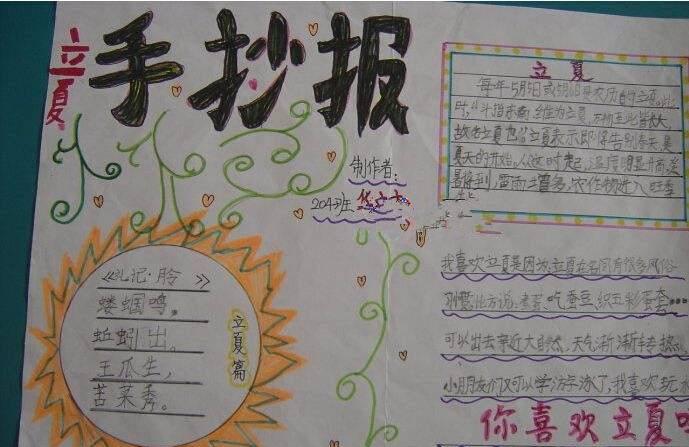 立夏
手抄报
制作者:
204班
《礼记·月令》
蝼蝈鸣,
蚯蚓出。
王瓜生,
苦菜秀。
立夏篇
立 夏
每年5月5日或6日是农历的立夏
斗指东南,维为立夏,万物至此皆长大,
故名立夏也。立夏表示即将告别春天,是
夏天的开始。从此时起,温度明显升高,炎
暑将到,雷雨增多,农作物进入旺季
我喜欢立夏是因为立夏在各间有很多风俗
比方说:煮蛋、吃蚕豆、织五彩蛋套……
可以出去亲近大自然,天气渐渐转热
小朋友们又可以学游泳了,我喜欢玩水
你喜欢立夏吗